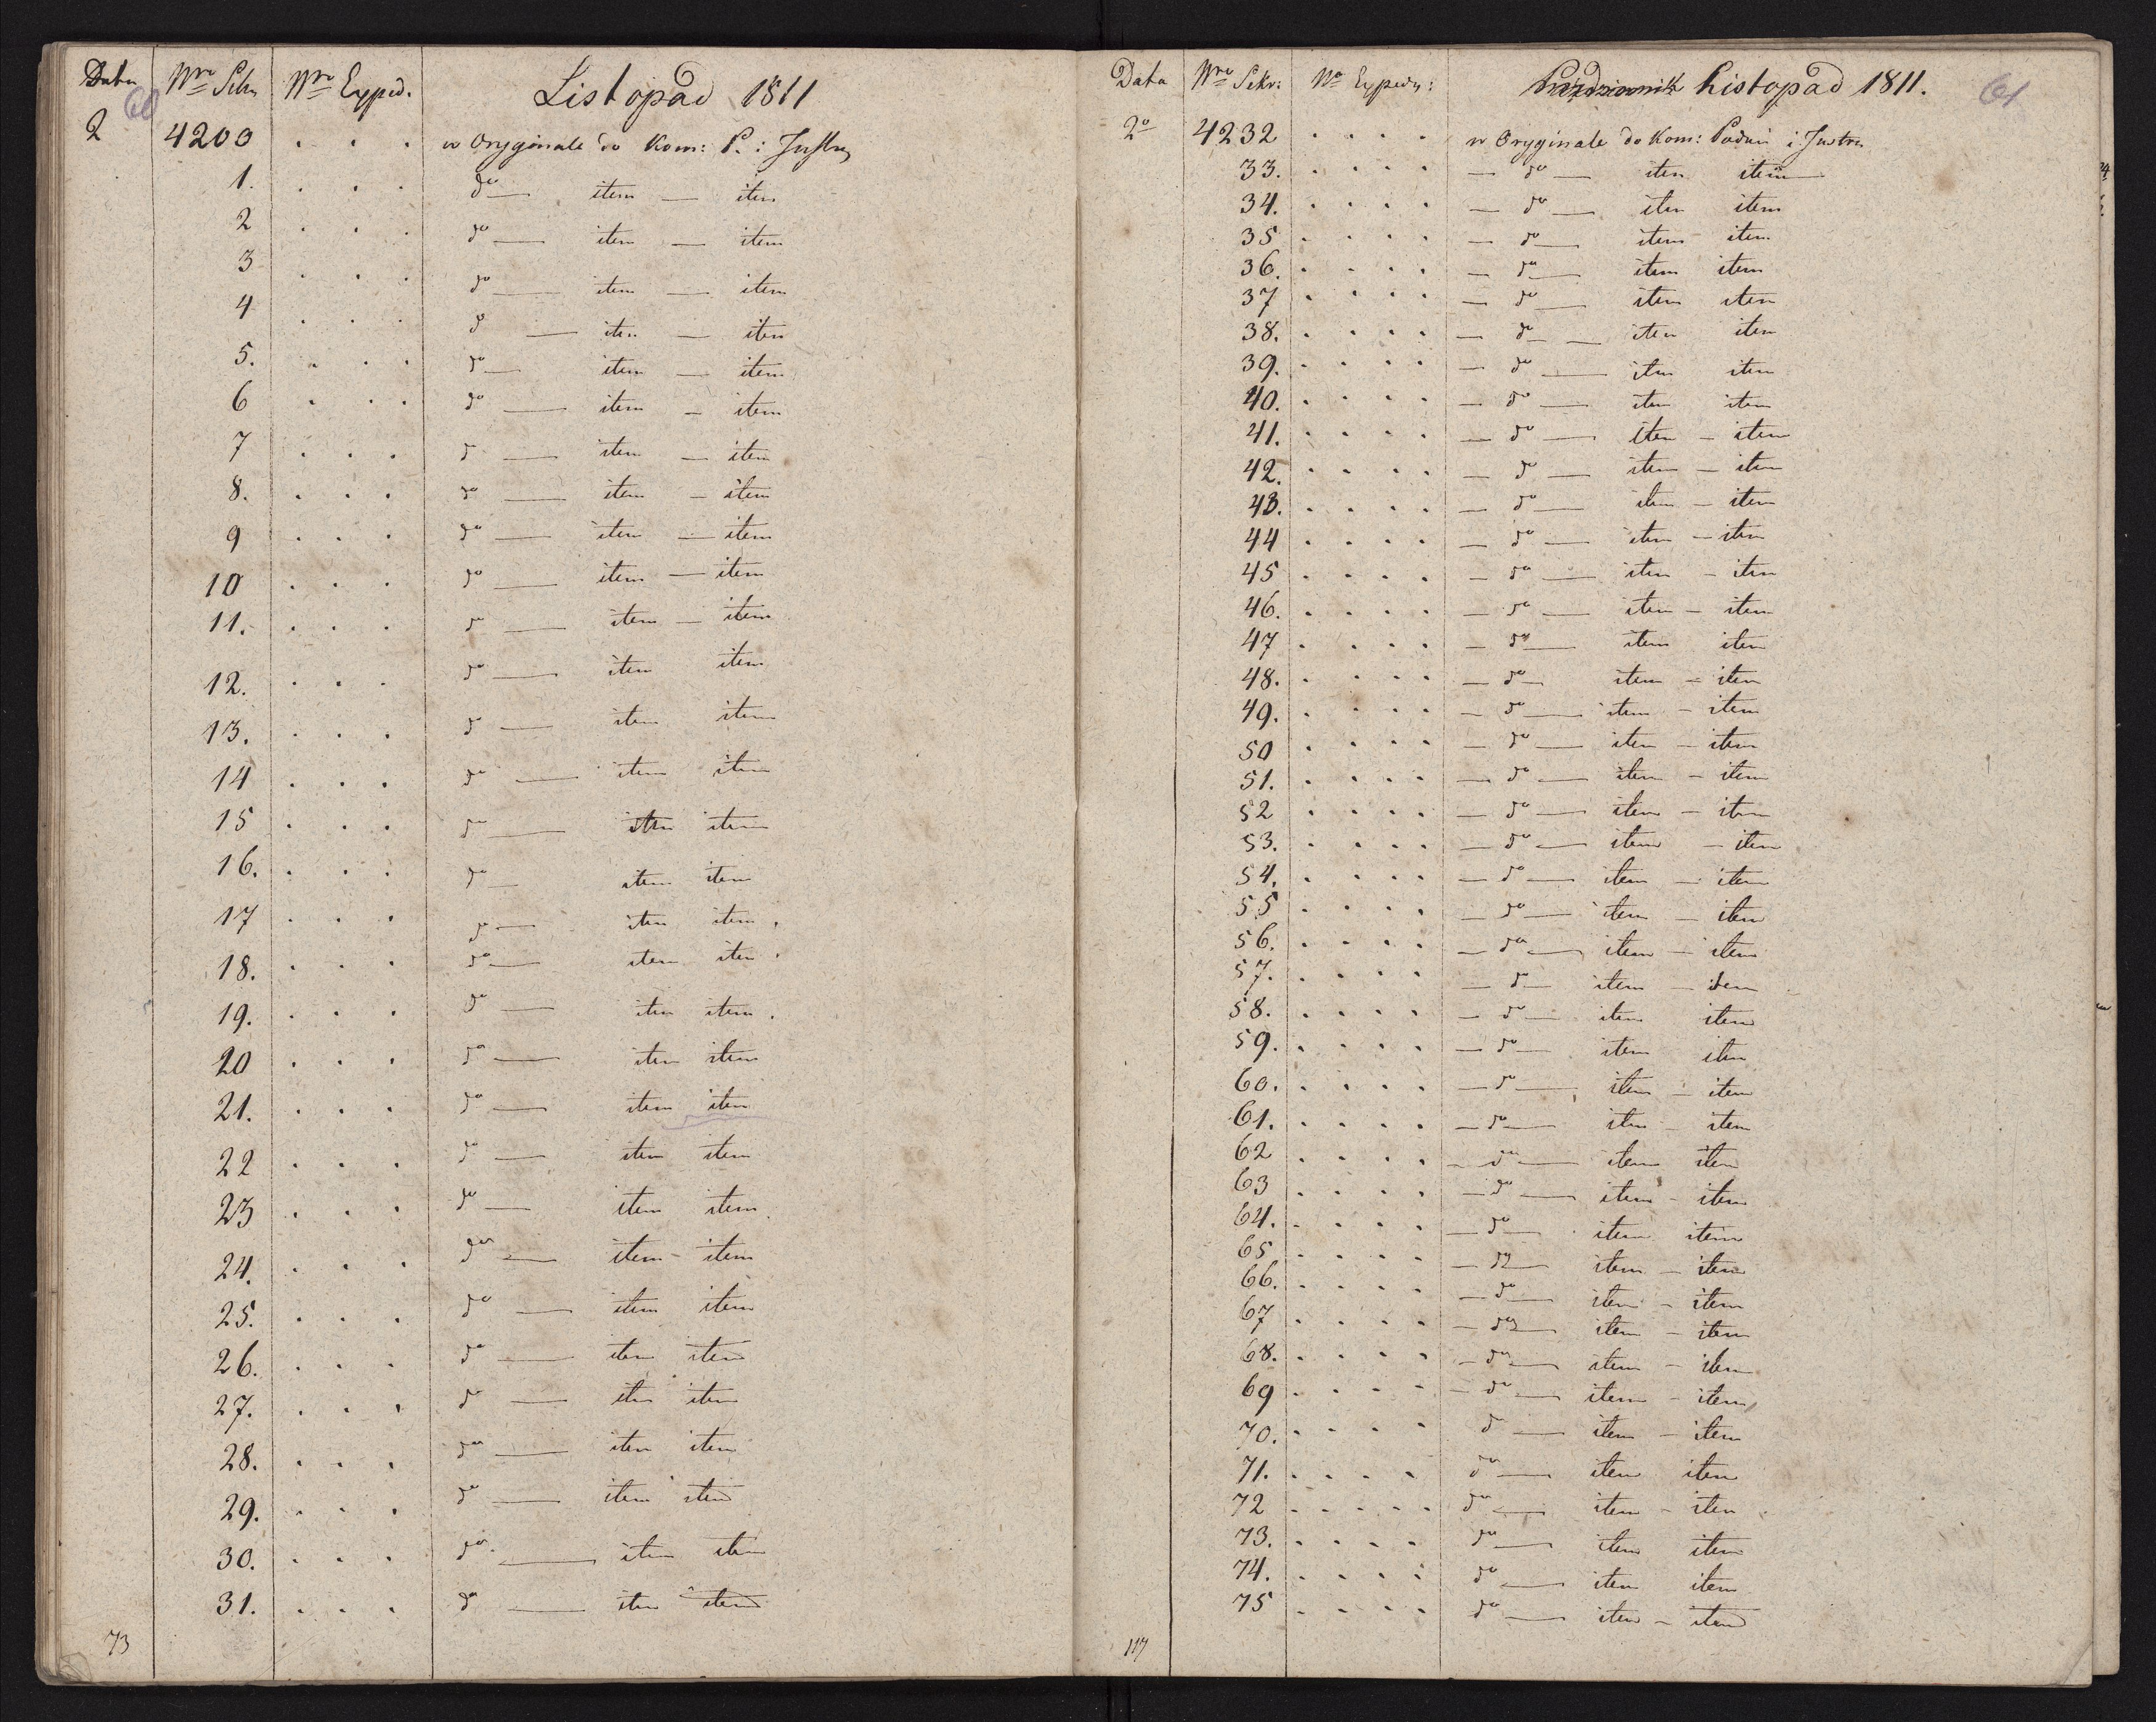 Data Nro Sekr Nro Exped. Listopad 1811
60
2 4200 . . . w Oryginale do Kom: P. : Justru
1. . . . do — item — item
2 . . . do — item — item
3 . . . do — item — item
4 . . . do — item — item
5. . . . do — item — item
6 . . . do — item — item
7 . . . do — item — item
8. . . . do — item — item
9 . . . do — item — item
10 . . . do — item — item
11. . . . do — item — item
12. . . . do — item item
13. . . . do — item item
14 . . . do — item item
15 . . . do — item item
16. . . . do — item item
17 . . . do — item item
18. . . . do — item item
19. . . . do — item item
20 . . . do — item item
21. . . . do — item item
22 . . . do — item item
23 . . . do — item item
24. . . . do — item - item
25. . . . do — item item
26. . . . do — item item
27. . . . do — item item
28. . . . do — item item
29. . . . do — item item
30. . . . do — item item
31. . . . do — item item
73
Data Nro Sekr: No Expedy: Październik Listopad 1811. 61
2o 4232 . . . . w Oryginale do Kom: Podwi i Justru
33. . . . . — do — item item
34. . . . . — do — item item
35 . . . . — do — item item
36. . . . . — do — item item
37 . . . . — do — item item
38. . . . . — do — item item
39. . . . . — do — item item
40. . . . . — do — item item
41. . . . . — do — item — item
42. . . . . — do — item — item
43. . . . . — do — item — item
44 . . . . — do — item — item
45 . . . . — do — item — item
46. . . . . — do — item — item
47 . . . . — do — item item
48. . . . . — do — item — item
49. . . . . — do — item — item
50 . . . . — do — item — item
51. . . . . — do — item — item
52 . . . . — do — item — item
53. . . . . — do — item — item
54. . . . . — do — item — item
55 . . . . — do — item — item
56. . . . . — do — item — item
57. . . . . — do — item — item
58. . . . . — do — item item
59. . . . . — do — item item
60. . . . . — do — item — item
61. . . . . — do — item — item
62 . . . . — do — item item
63 . . . . — do — item — item
64. . . . . — do — item item
65 . . . . — do — item — item
66. . . . . — do — item — item
67 . . . . — do — item — item
68. . . . . — do — item — item
69 . . . . — do — item — item
70. . . . . do — item — item
71. . . . . do — item item
72 . . . . . do — item — item
73. . . . . do — item item
74. . . . . do — item item
75 . . . . do — item — item
117